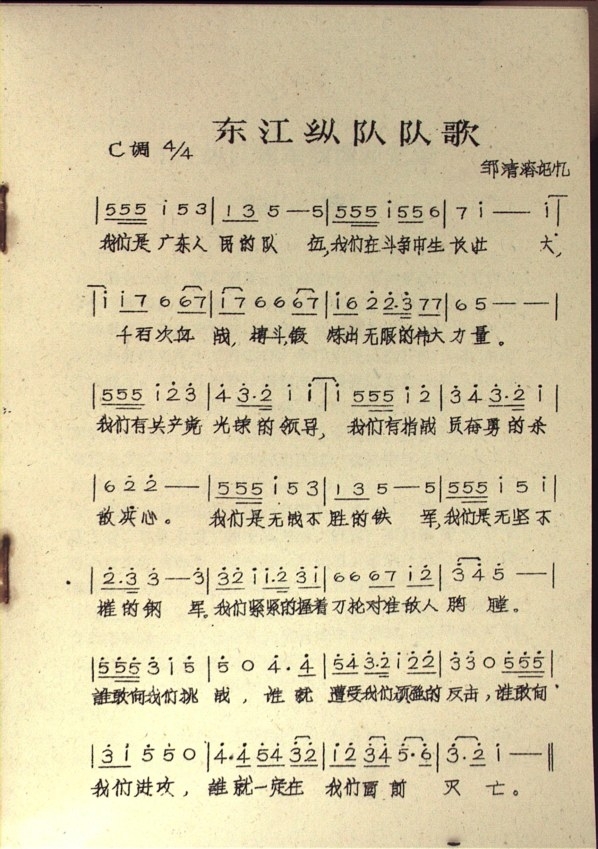 东江纵队队歌
C调 4/4
邹清容记忆
|555 i53|135—5|555 i556|7i——i|
我们是广东人民的队 伍,我们在斗争中生长壮 大,
|i i76 67|i7 66 67|i6 22.3 77|65——|
千百次血 战,搏斗,锻 炼出无限的伟大力量。
|555 i23|43.2 i i|i 555 i2|343.2 i|
我们有共产党 光荣的领导, 我们有指战 员奋勇的杀
|622—|555 i53|135—5|555 i5i|
敌决心。 我们是无战不胜的铁 军,我们是无坚不
|2.33—3|32ii.23i|6667i2|345—|
摧的钢 军。我们紧紧的握着刀枪对准敌人胸膛。
|5553i5|504.4|543.2i22|330555|
谁敢向我们挑 战, 谁就 遭受我们顽强的反击,谁敢向
|3i550|4.45432|i2345.6|3.2i—‖
我们进攻, 谁就一定在 我们面前 灭 亡。